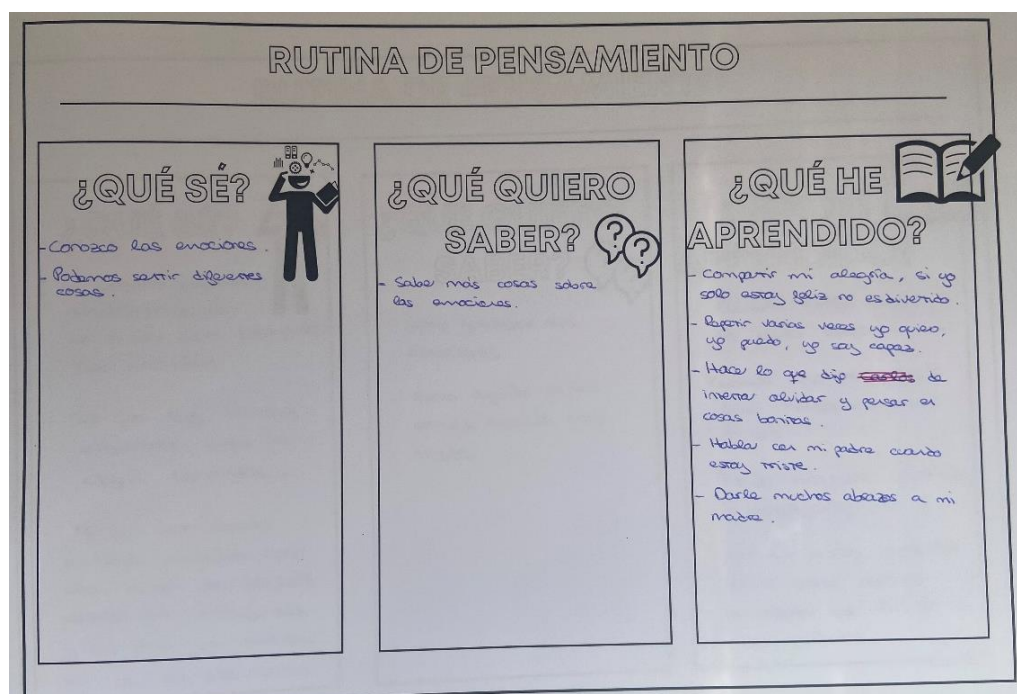 RUTINA DE PENSAMIENTO
¿QUÉ SÉ?
- Conozco las emociones.
- Podemos sentir diferentes
cosas.
¿QUÉ QUIERO
SABER?
- Saber más cosas sobre
las emociones.
¿QUÉ HE
APRENDIDO?
- Compartir mi alegría, si yo
solo estoy feliz no es divertido.
- Repetir varias veces yo quiero,
yo puedo, yo soy capaz.
- Hacer lo que dijo de
intentar olvidar y pensar en
cosas bonitas.
- Hablar con mi padre cuando
estoy triste.
- Darle muchos abrazos a mi
madre.